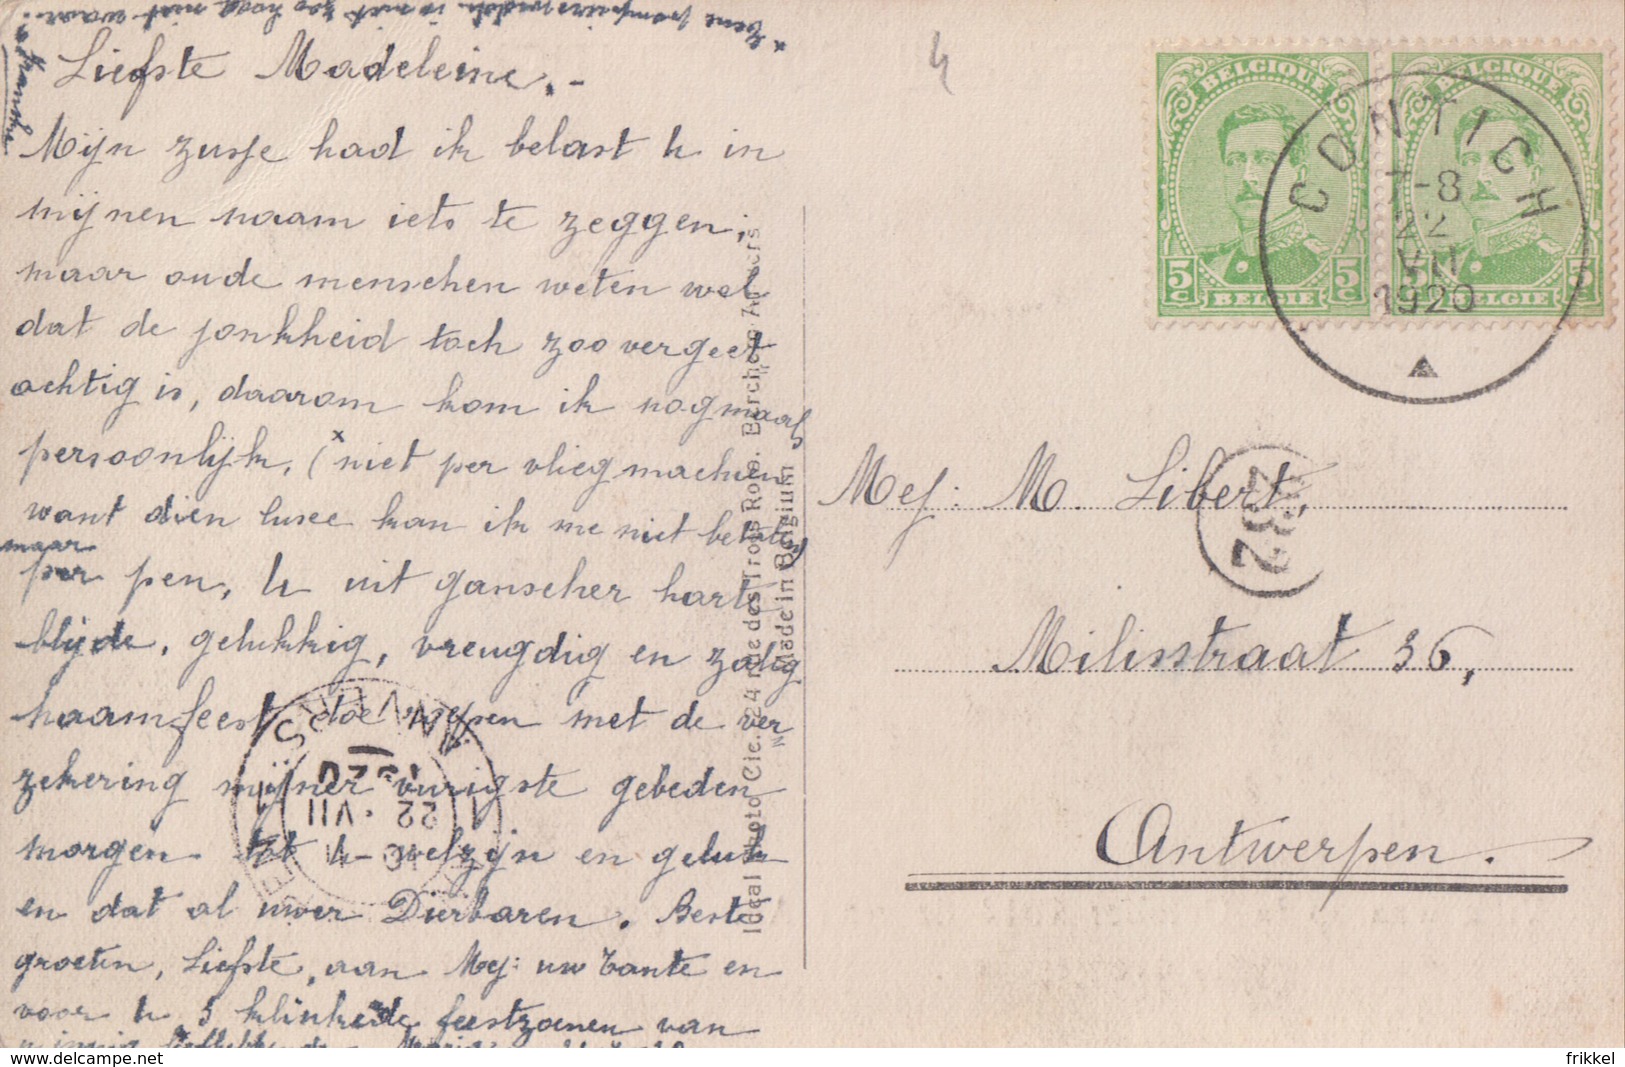 * Eene pompiersvrouw is niet zoo hoog niet waar?
Liefste Madeleine. -
Mijn zusje had ik belast U in
mijnen naam iets te zeggen;
maar oude menschen weten wel
dat de jonkheid toch zoo vergeet
achtig is, daarom kom ik nogmaals
persoonlijk, (* niet per vliegmachien
want dien luxe kan ik me niet betalen)
maar
per pen, U uit ganscher harte
blijde, gelukkig, vreugdig en zalig
naamfeest toe roepen met de ver
zekering mijner vurigste gebeden
morgen tot U welzijn en geluk
en dat al uwer Dierbaren. Beste
groeten, Liefste, aan Mej: uw Tante en
voor U 3 klinkende feestzoenen van
BELGIQUE
5c 5c
BELGIE
BELGIQUE
5c 5c
BELGIE
CONTICH
7-8
22
VII
1920
Mej: M. Libert,
282
Milisstraat 36,
Antwerpen.
ANVERS
1920
22 VII
Ideal Photo Cie. 24 rue des Trois Rois. Berchem-Anvers
Made in Belgium
frikkel